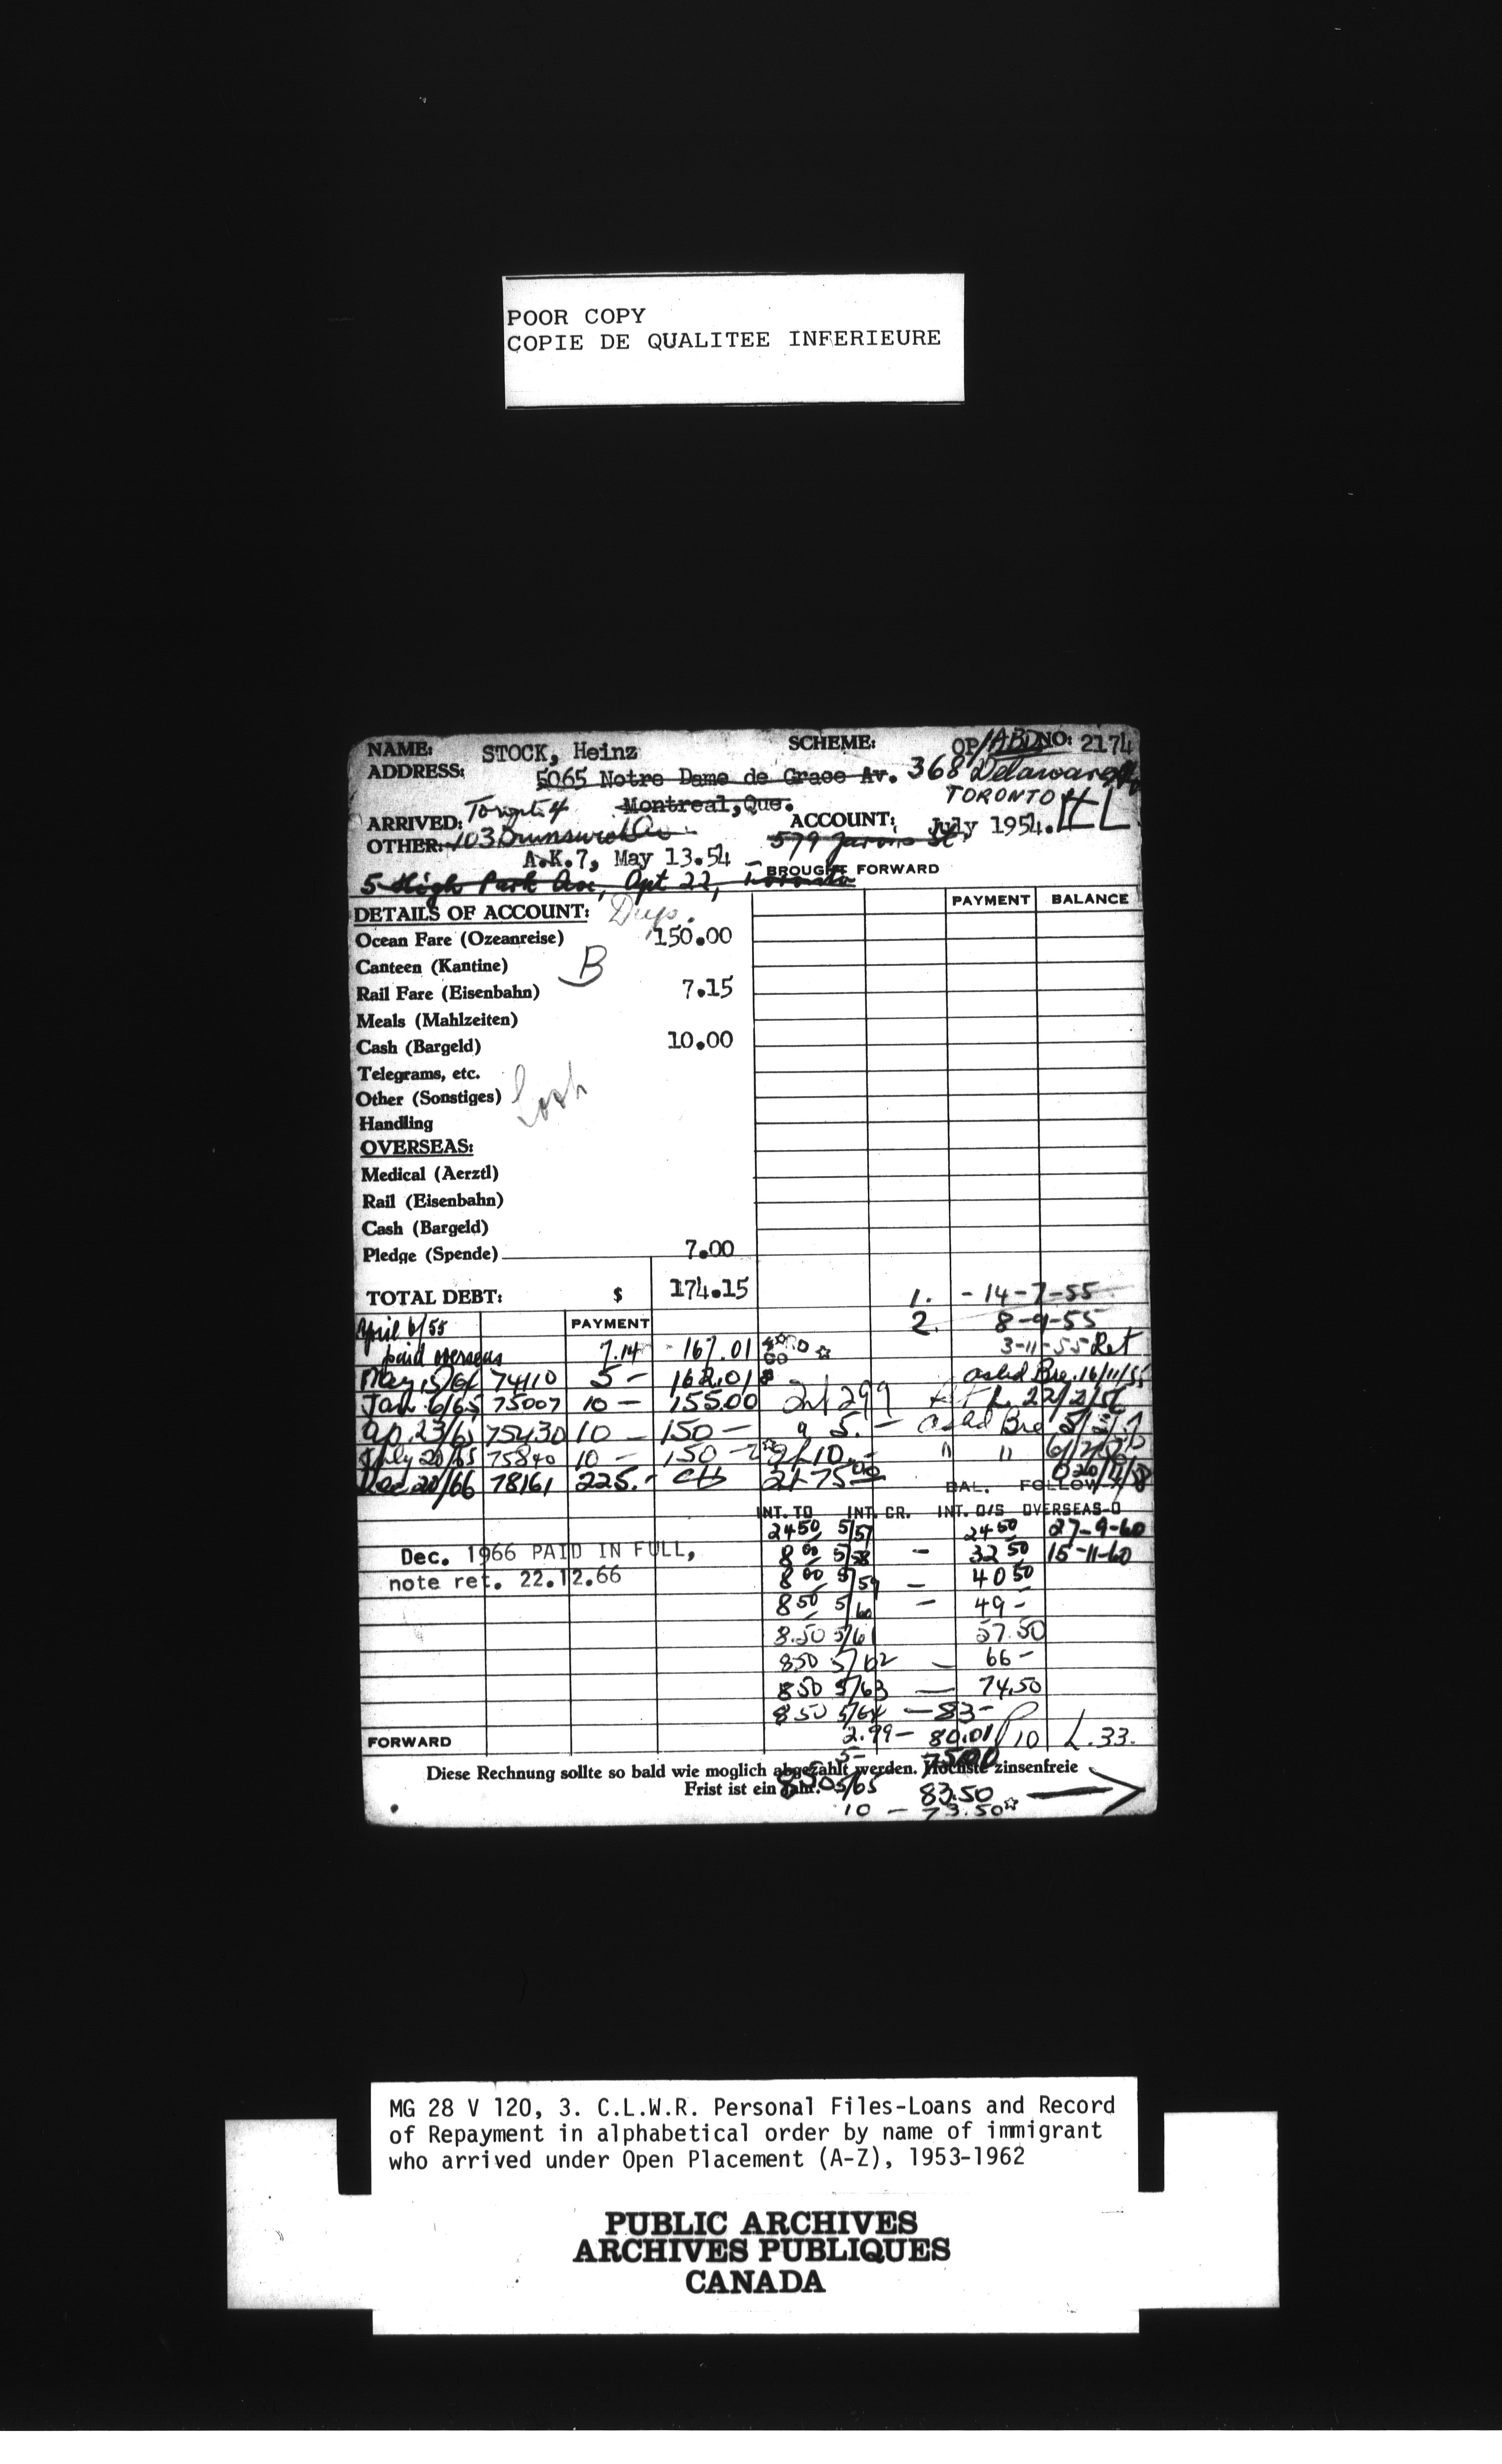 POOR COPY
COPIE DE QUALITEE INFERIEURE
NAME: STOCK, Heinz SCHEME: OP/ABD NO: 2174
ADDRESS: 5065 Notre Dame de Grace Av. 368 Delaware
Montreal, Que. TORONTO
ARRIVED: Toronto 4 ACCOUNT: July 1954. HL
OTHER: 103 Brunswick Av. 579 Jarvis St,
A.K.7, May 13.54 BROUGHT FORWARD
5 High Park Ave, Apt 22, Toronto
PAYMENT BALANCE
DETAILS OF ACCOUNT: Dup.
Ocean Fare (Ozeanreise) 150.00
Canteen (Kantine) B
Rail Fare (Eisenbahn) 7.15
Meals (Mahlzeiten)
Cash (Bargeld) 10.00
Telegrams, etc.
Other (Sonstiges)
Handling
OVERSEAS:
Medical (Aerztl)
Rail (Eisenbahn)
Cash (Bargeld)
Pledge (Spende) 7.00
TOTAL DEBT: $ 174.15
1. - 14-7-55
April 6/55 PAYMENT 2. 8-9-55
paid overseas 7.14 - 167.01 3-11-55 Ret
May 15/64 74110 5 - 162.01 asked Bre. 16/11/55
Jan. 6/65 75007 10 - 155.00 Int 2.99 22/2/56
Ap. 23/65 75430 10 - 150 - 5. - asked Bre
July 20/65 75840 10 - 150 - 10. - " "
Dec 20/66 78161 225. - 75.00
BAL. FOLLOW
INT. TO INT. CR. INT. O/S OVERSEAS-O
24.50 5/57 24.50 27-9-60
Dec. 1966 PAID IN FULL, 8.00 5/58 - 32.50 15-11-60
note ret. 22.12.66 8.00 5/59 - 40.50
8.50 5/60 - 49 -
8.50 5/61 57.50
8.50 5/62 - 66 -
8.50 5/63 - 74.50
8.50 5/64 - 83 -
FORWARD 2.99 - 80.01 P 10 L.33.
5- 75.00
Diese Rechnung sollte so bald wie moglich abgezahlt werden. Hochste zinsenfreie
Frist ist ein Jahr. 8.50 5/65 83.50
10 - 73.50
MG 28 V 120, 3. C.L.W.R. Personal Files-Loans and Record
of Repayment in alphabetical order by name of immigrant
who arrived under Open Placement (A-Z), 1953-1962
PUBLIC ARCHIVES
ARCHIVES PUBLIQUES
CANADA